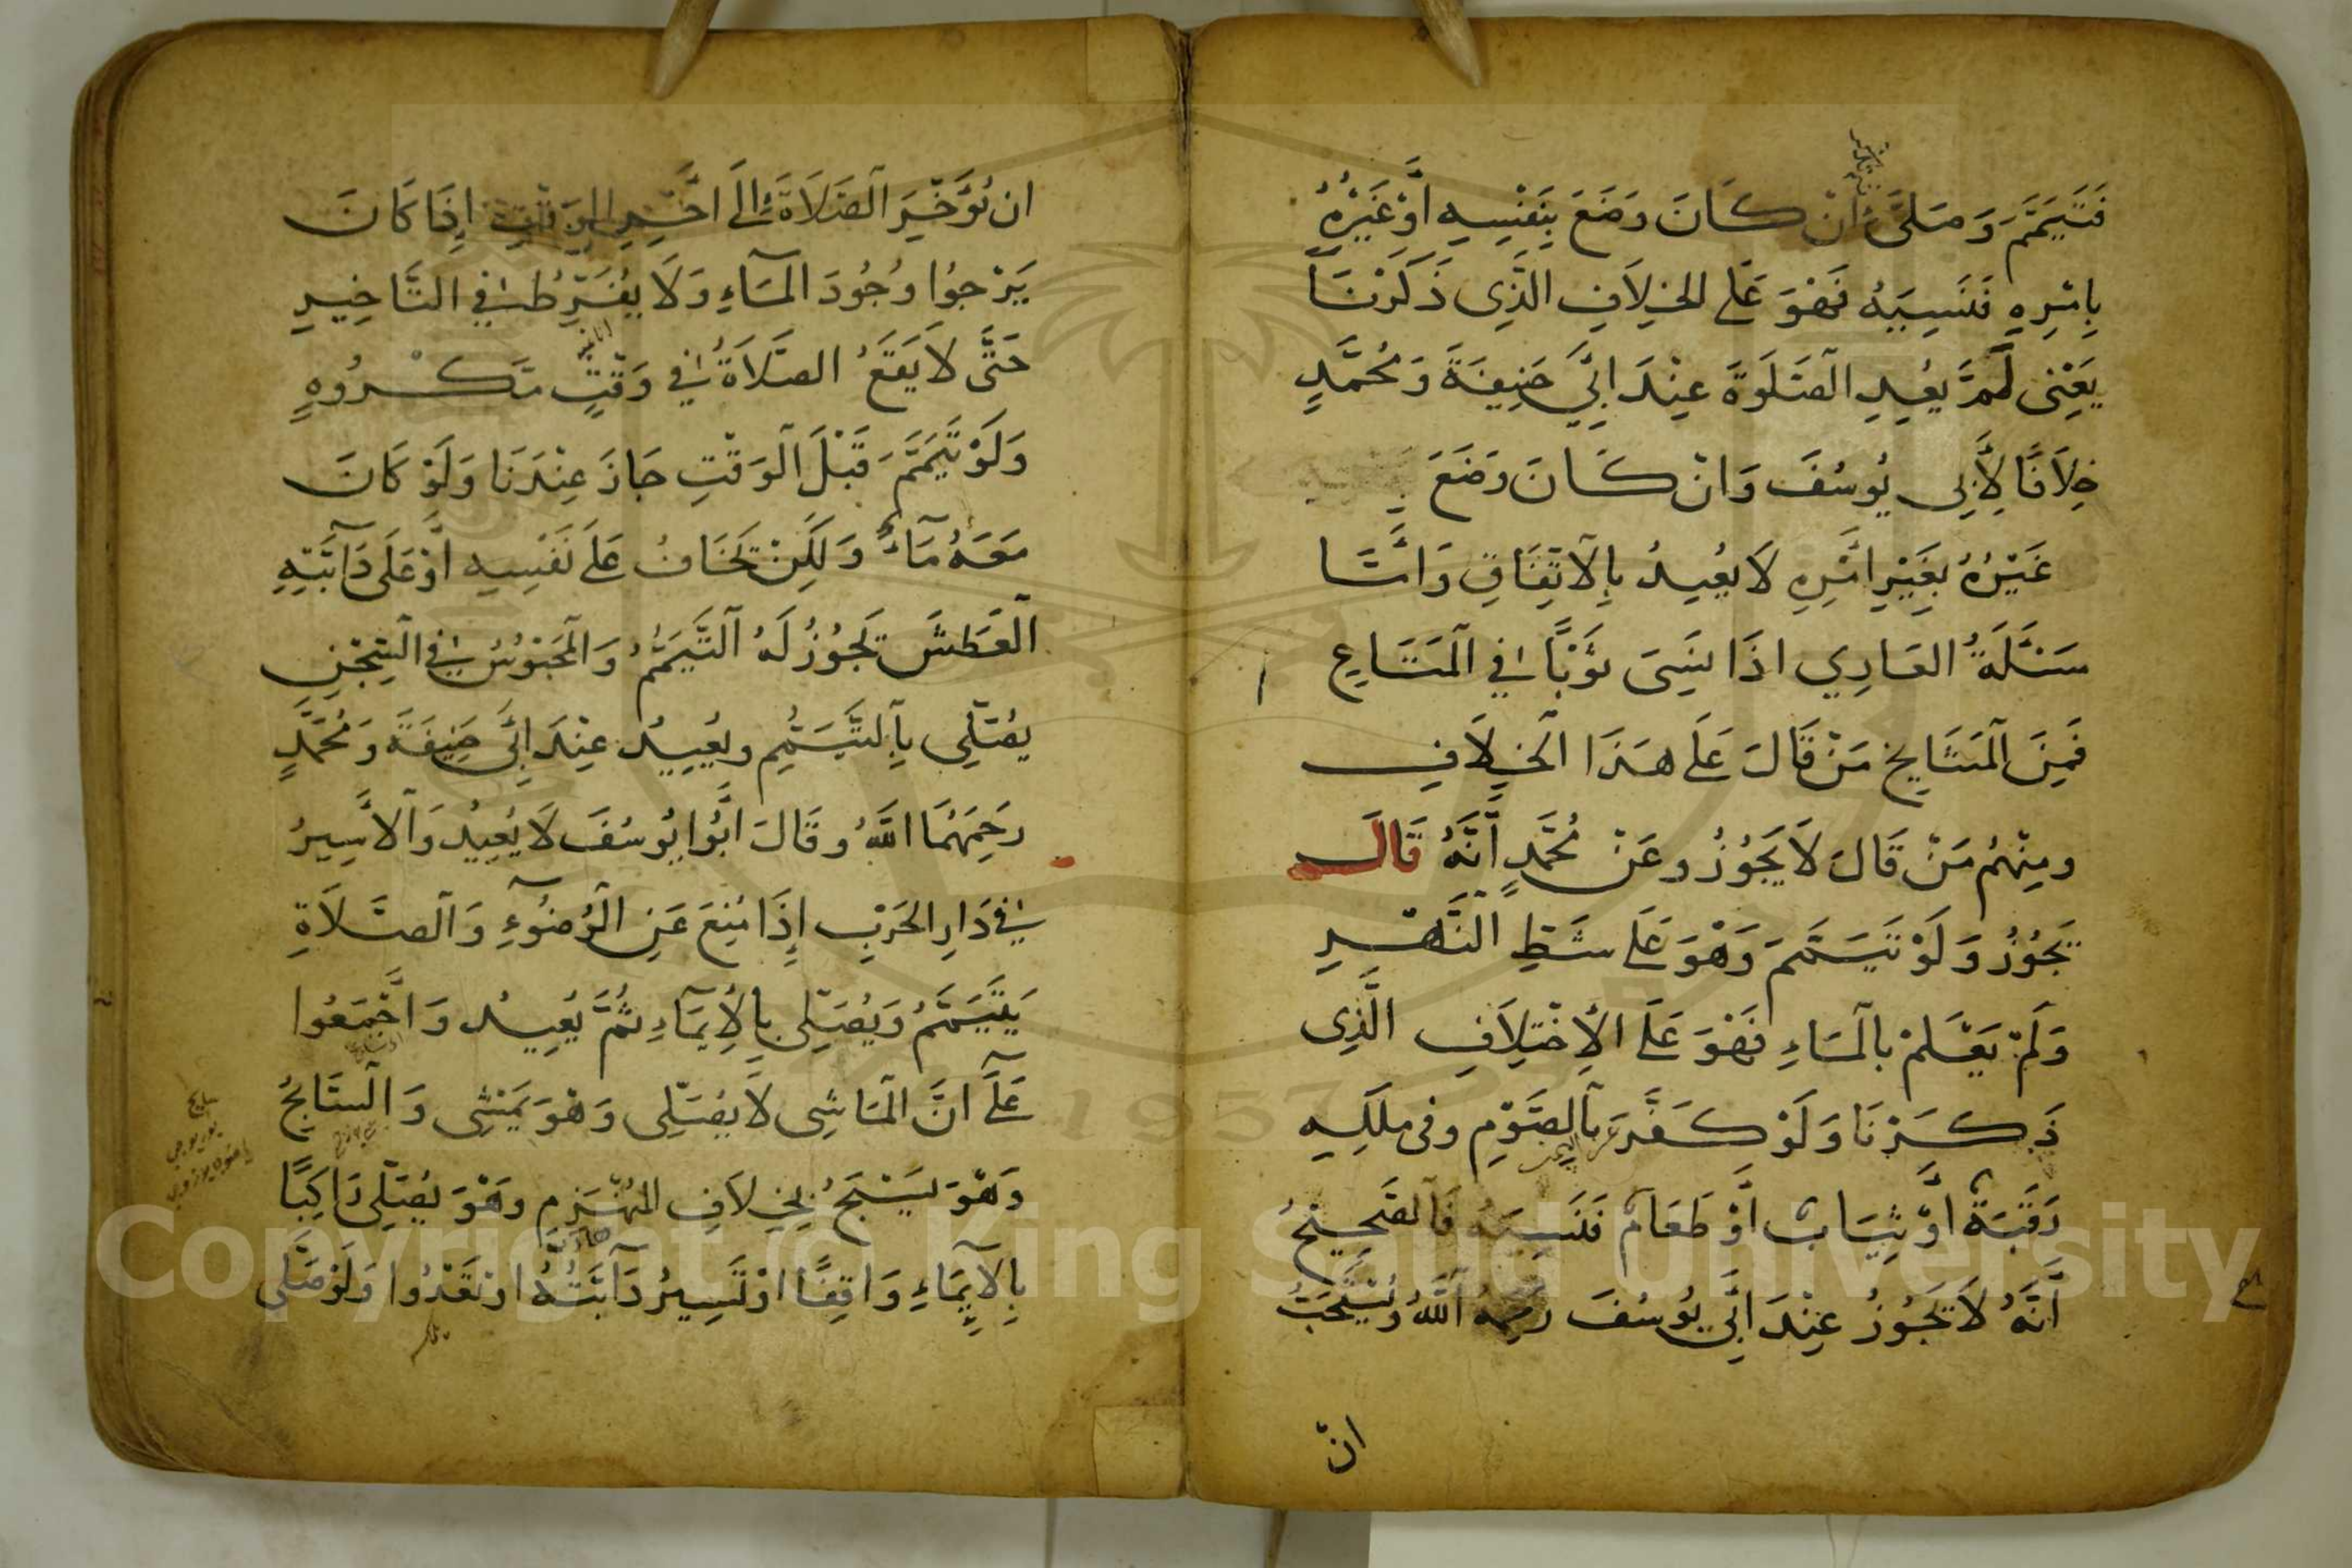 فَتَيَمَّمَ وَصَلَّى اِنْ كَانَ وَضَعَ بِنَفْسِهِ اَوْ غَيْرُهُ
بِاَمْرِهِ فَنَسِيَهُ فَهُوَ عَلَى الخِلَافِ الَّذِى ذَكَرْنَا
يَعْنِى لَمْ يُعِدِ الصَّلَوةَ عِنْدَ اَبِي حَنِيفَةَ وَمُحَمَّدٍ
خِلَافًا لِاَبِى يُوسُفَ وَانْ كَانَ وَضَعَ
غَيْرُهُ بِغَيْرِ اَمْرِهِ لَا يُعِيدُ بِالْاتِّفَاقِ وَاَمَّا
مَسْئَلَةُ العَارِي اذَا نَسِىَ ثَوْبًا فِي الْمَتَاعِ
فَمِنَ الْمَشَايِخِ مَنْ قَالَ عَلَى هَذَا الْخِلَافِ
ومِنْهُمْ مَنْ قَالَ لَا يَجُوزُ وعَنْ مُحَمَّدٍ اَنَّهُ قَالَ
يَجُوزُ وَلَوْ تَيَمَّمَ وَهُوَ عَلَى شَطِّ النَّهْرِ
وَلَمْ يَعْلَمْ بالْمَاءِ فَهُوَ عَلَى الاِخْتِلَافِ الَّذِى
ذَكَرْنَا وَلَوْ كَفَّرَ بالصَّوْمِ وفى مِلْكِهِ
رَقَبَةٌ اَوْ ثِيَابٌ اَوْ طَعَامٌ فَنَسِيَهُ فَالصَّحِيحُ
اَنَّهُ لَا يَجُوزُ عِنْدَ اَبِي يُوسُفَ رَحِمَهُ اللَّهُ وَيُسْتَحَبُّ
انّ
ان يُؤَخِّرَ الصَّلَاةَ اِلَى اخِرِ الوَقْتِ اِذَا كَانَ
يَرْجوُا وُجُودَ الْمَاءِ وَلَا يُفَرِّطُ فِي التَّاخِيرِ
حَتَّى لَا يَقَعَ الصَّلَاةُ فِي وَقْتٍ مَكْرُوهٍ
وَلَوْ تَيَمَّمَ قَبْلَ الْوَقْتِ جَازَ عِنْدَنَا وَلَوْ كَانَ
مَعَهُ مَآءٌ وَلَكِنْ يَخَافُ عَلَى نَفْسِهِ اَوْ عَلَى دَآبَّتِهِ
الْعَطَشَ يَجُوزُ لَهُ التَّيَمُّمُ وَالْمَحْبُوسُ فِي السِّجْنِ
يُصَلِّى بِالتَّيَمُّمِ ويُعِيدُ عِنْدَ اَبِي حَنِيفَةَ وَمُحَمَّدٍ
رحِمَهُمَا اللَّهُ وقَالَ ابُوا يُوسُفَ لَا يُعِيدُ وَالْاَسِيرُ
فِي دَارِ الحَرْبِ اِذَا مُنِعَ عَنِ الْوُضُوءِ وَالصَّلَاةِ
يَتَيَمَّمُ وَيُصَلِّى بِالْاِيمَآءِ ثُمَّ يُعِيدُ وَاَجْمَعُوا
عَلَى انَّ الْمَاشِى لَا يُصَلِّى وَهُوَ يَمْشِى وَالسَّابِحُ
وَهُوَ يَسْبَحُ بِخِلَافِ الْمُنْهَزِمِ وهُوَ يُصَلِّى رَاكِبًا
بِالْاِيمَاءِ وَاقِفًا اَوْ تَسِيرُ دَآبَّتُهُ اوْ تَعْدُوا وَلَوْ صَلَّى
Copyright © King Saud University
1957